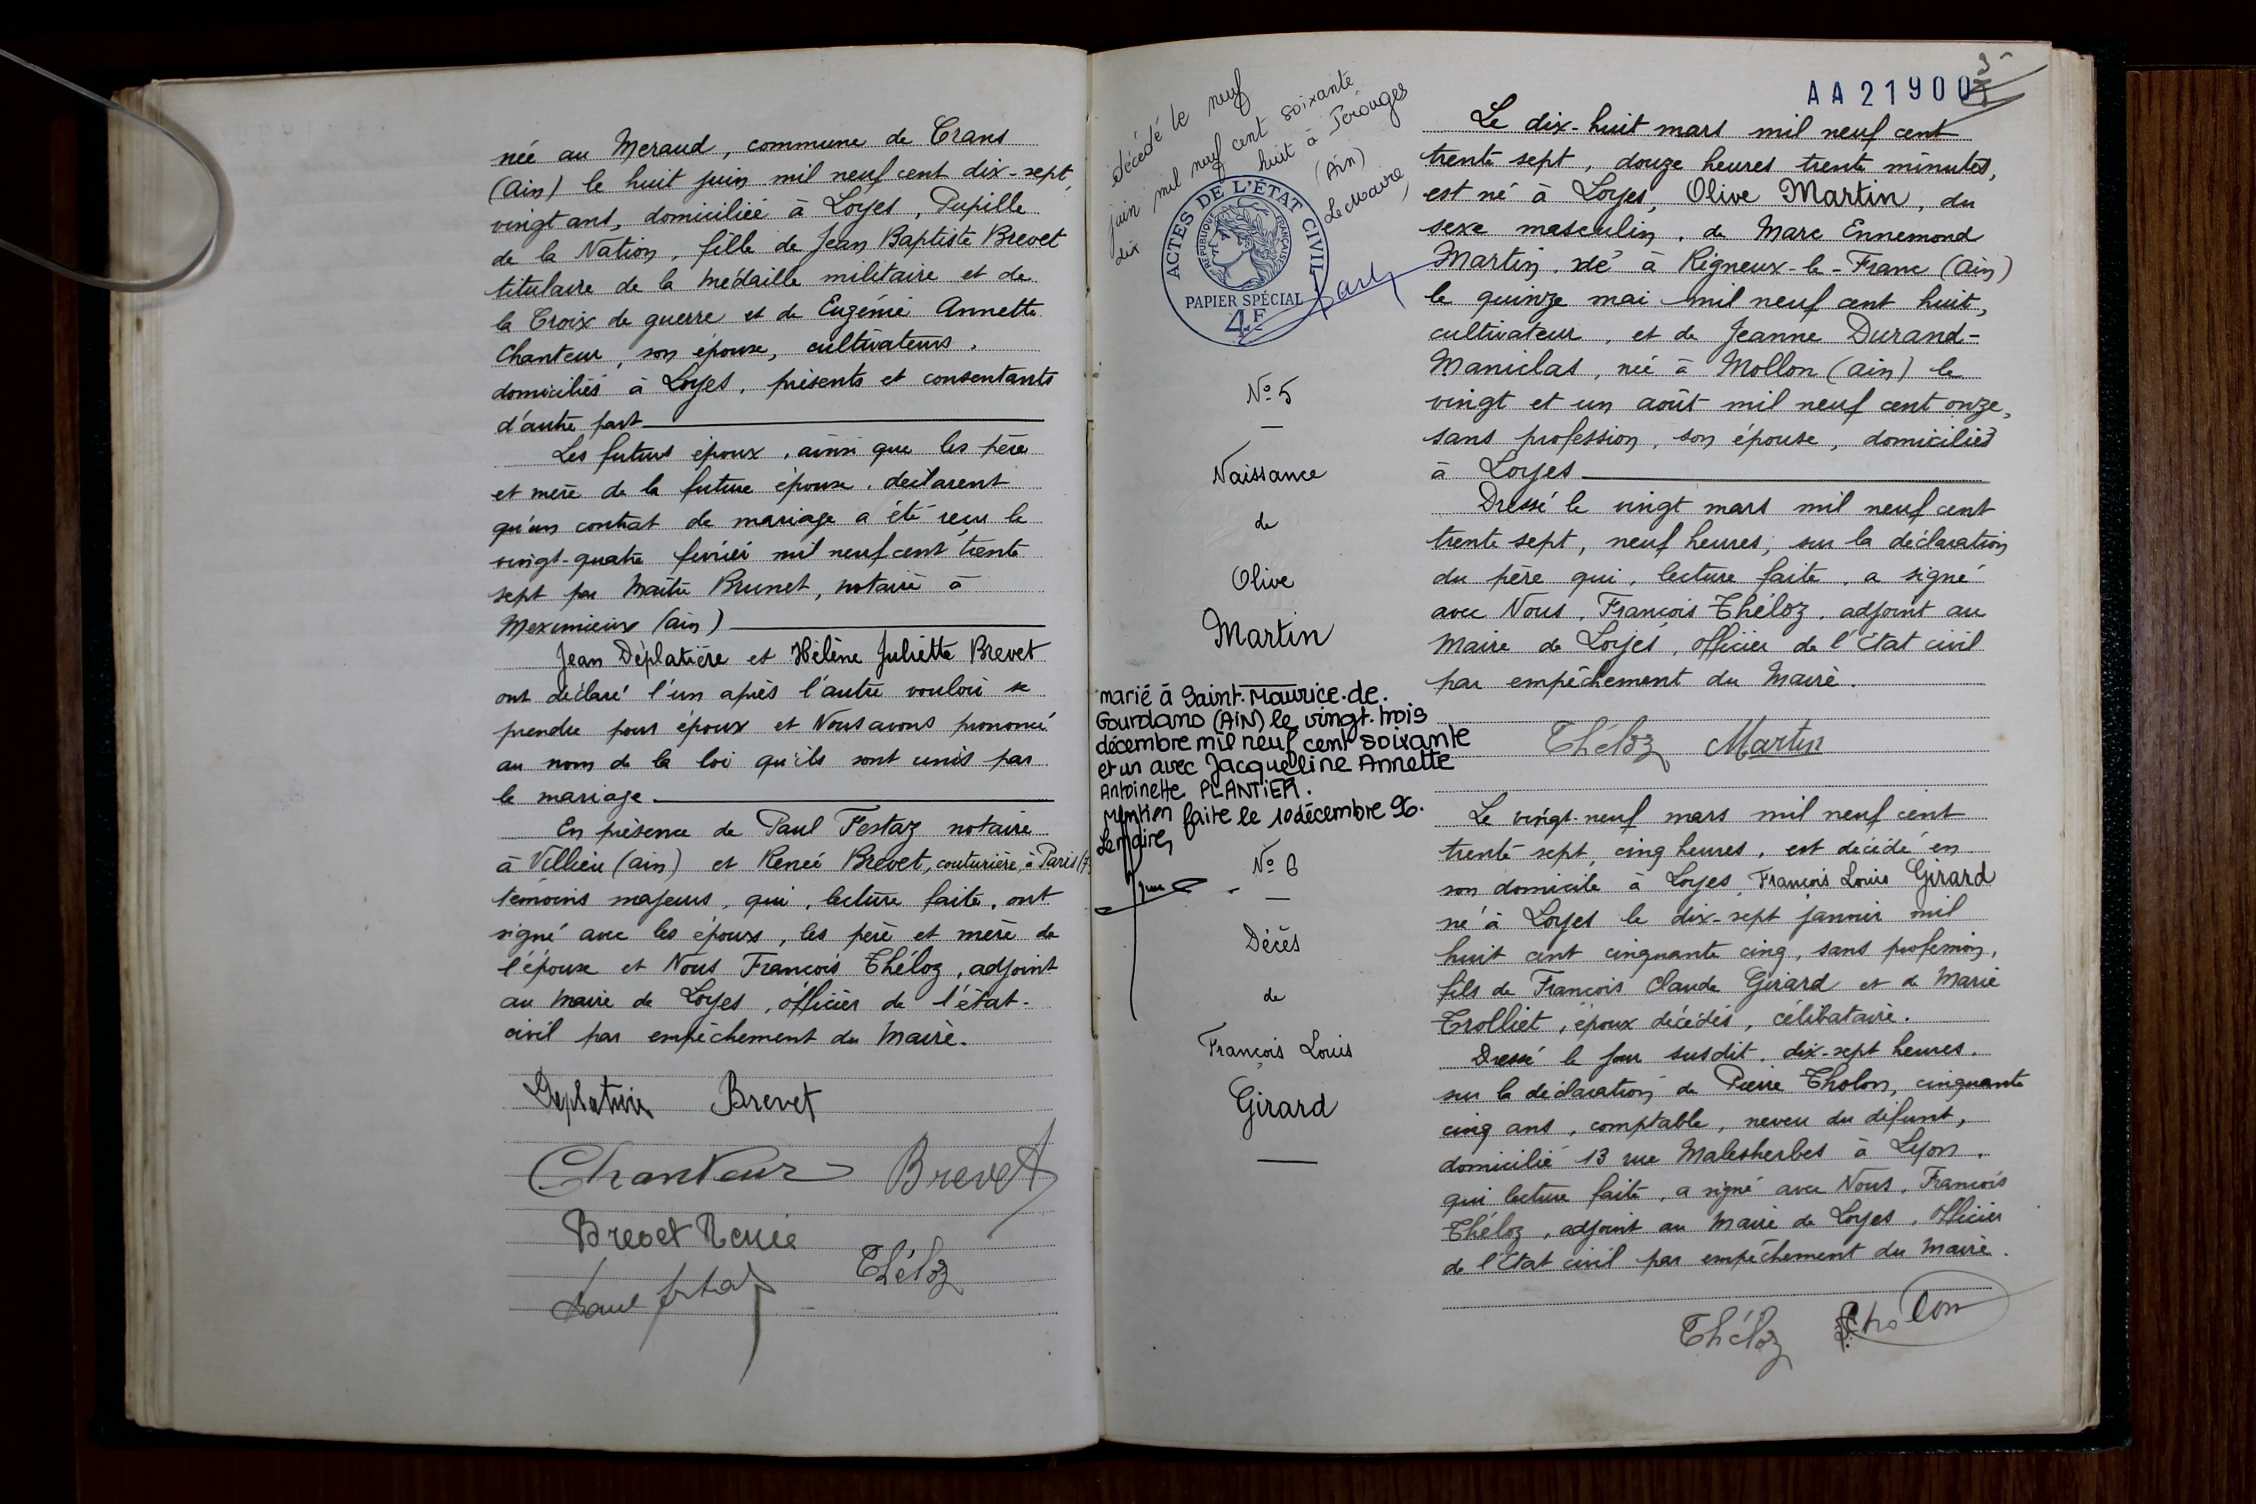 née au Meraud, commune de Crans
(Ain) le huit juin mil neuf cent dix-sept,
vingt ans, domiciliée à Loyes, Pupille
de la Nation, fille de Jean Baptiste Brevet
titulaire de la médaille militaire et de
la Croix de guerre et de Eugénie Annette
Chanteur, son épouse, cultivateurs,
domiciliés à Loyes, présents et consentants
d'autre part
Les futurs époux, ainsi que les père
et mère de la future épouse, déclarent
qu'un contrat de mariage a été reçu le
vingt-quatre février mil neuf cent trente
sept par Maître Brunet, notaire à
Meximieux (ain)
Jean Déplatière et Hélène Juliette Brevet
ont déclaré l'un après l'autre vouloir se
prendre pour époux et Nous avons prononcé
au nom de la loi qu'ils sont unis par
le mariage
En présence de Paul Festaz notaire
à Villieu (ain) et Renée Brevet, couturière, à Paris (7
témoins majeurs, qui, lecture faite, ont
signé avec les époux, les père et mère de
l'épouse et Nous François Théloz, adjoint
au maire de Loyes, officier de l'état-
civil par empêchement du Maire.
Déplatière Brevet
Chanteur Brevet
Brevet Renée
Théloz
Paul Festaz
Décédé le neuf
juin mil neuf cent soixante
dix huit à Pérouges
(Ain)
Le Maire,
ACTES DE L'ÉTAT CIVIL
RÉPUBLIQUE FRANÇAISE
PAPIER SPÉCIAL
4F
N° 5
Naissance
de
Olive
Martin
marié à Saint-Maurice-de-
Gourdans (AIN) le vingt-trois
décembre mil neuf cent soixante
et un avec Jacqueline Annette
Antoinette PLANTIER.
Mention faite le 10 décembre 96.
Le maire,
N° 6
Décès
de
François Louis
Girard
AA21900
Le dix-huit mars mil neuf cent
trente sept, douze heures trente minutes,
est né à Loyes, Olive Martin, du
sexe masculin, de Marc Ennemond
Martin, né à Rigneux-le-Franc (Ain)
le quinze mai mil neuf cent huit,
cultivateur, et de Jeanne Durand-
Maniclas, née à Mollon (ain) le
vingt et un août mil neuf cent onze,
sans profession, son épouse, domiciliés
à Loyes
Dressé le vingt mars mil neuf cent
trente sept, neuf heures, sur la déclaration
du père qui, lecture faite, a signé
avec Nous, François Théloz, adjoint au
Maire de Loyes, officier de l'Etat civil
par empêchement du Maire.
Théloz Martin
Le vingt-neuf mars mil neuf cent
trente sept, cinq heures, est décédé en
son domicile à Loyes, François Louis Girard
né à Loyes le dix-sept janvier mil
huit cent cinquante cinq, sans profession,
fils de François Claude Girard et de Marie
Trolliet, époux décédés, célibataire.
Dressé le jour susdit, dix-sept heures,
sur la déclaration de Pierre Tholon, cinquante
cinq ans, comptable, neveu du défunt,
domicilié 13 rue Malesherbes à Lyon,
qui lecture faite, a signé avec Nous, François
Théloz, adjoint au Maire de Loyes, Officier
de l'Etat civil par empêchement du Maire.
Théloz Tholon